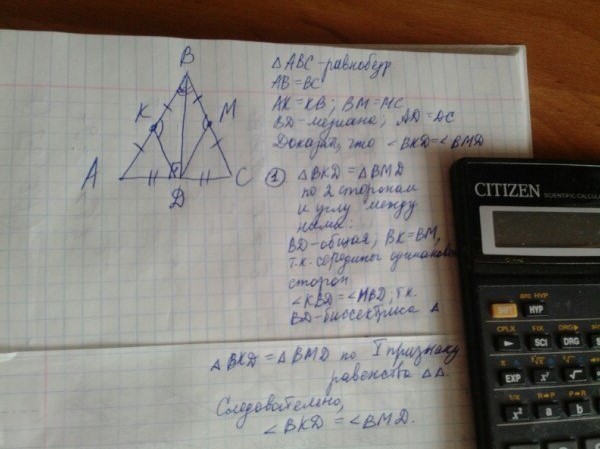 B
K
M
A
C
D
△ABC-равнобедр.
AB=BC
AK=KB; BM=MC
BD-медиана; AD=DC
Доказать, что ∠BKD=∠BMD
① △BKD=△BMD
по 2 сторонам
и углу между
ними:
BD-общая; BK=BM,
т.к. середины одинаков
сторон
∠KBD=∠MBD; т.к.
BD-биссектриса △
△BKD=△BMD по I признаку
равенства △△.
Следовательно,
∠BKD=∠BMD.
CITIZEN
SCIENTIFIC CALCUL
HYP
CPLX FIX DRG▶
SCI DRG
EXP x² √
R→P P→R
x² a b